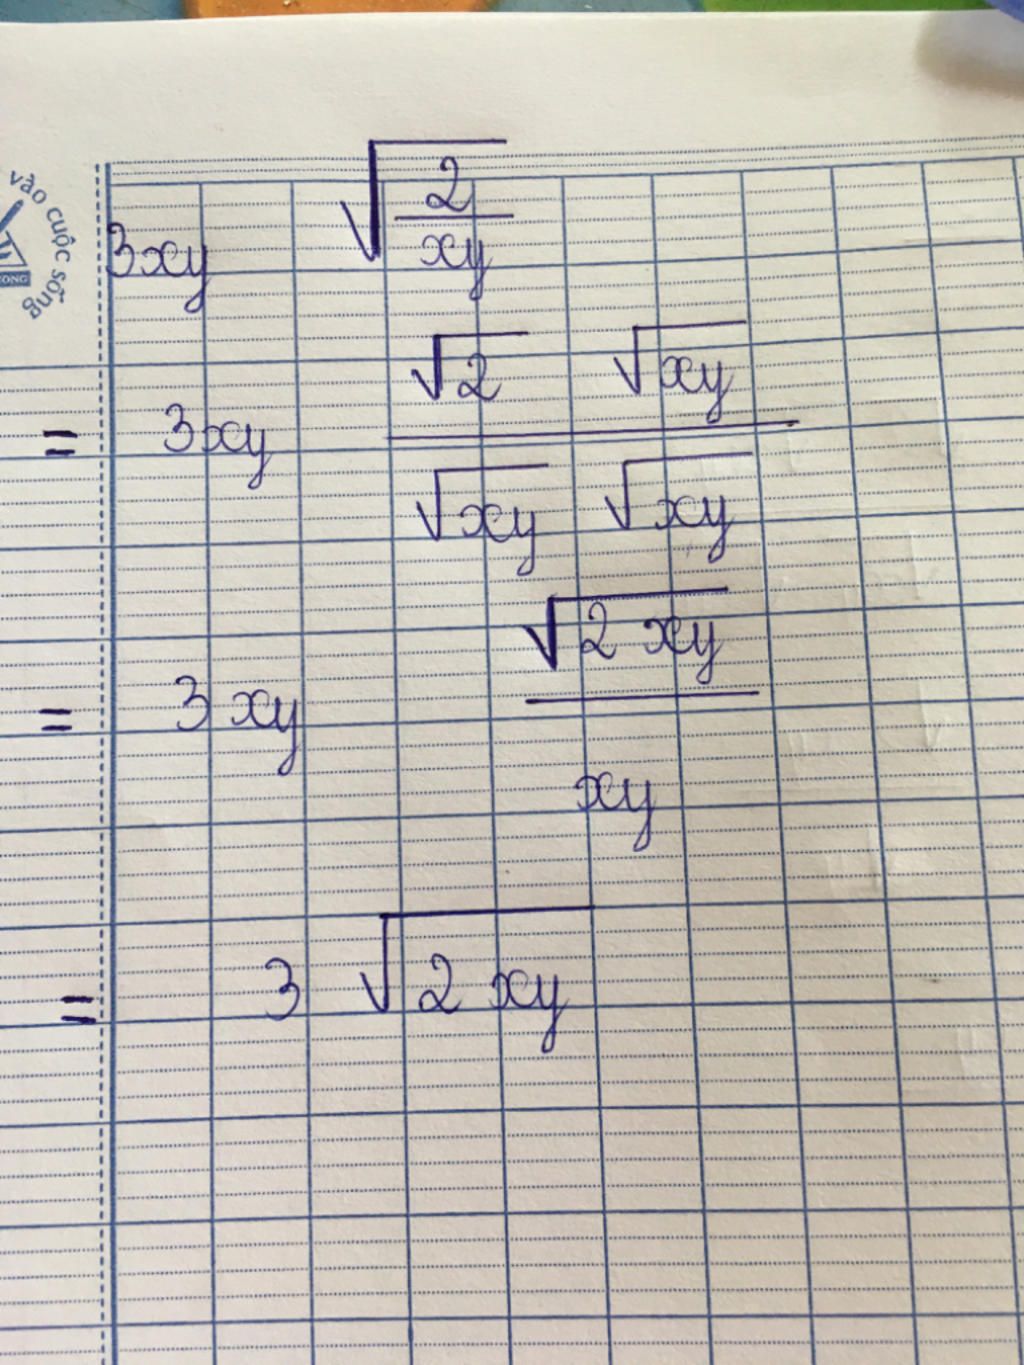 vào cuộc sống
3xy √(2/xy)
= 3xy (√2 √xy)/(√xy √xy)
= 3 xy √(2 xy)/xy
= 3 √(2 xy)